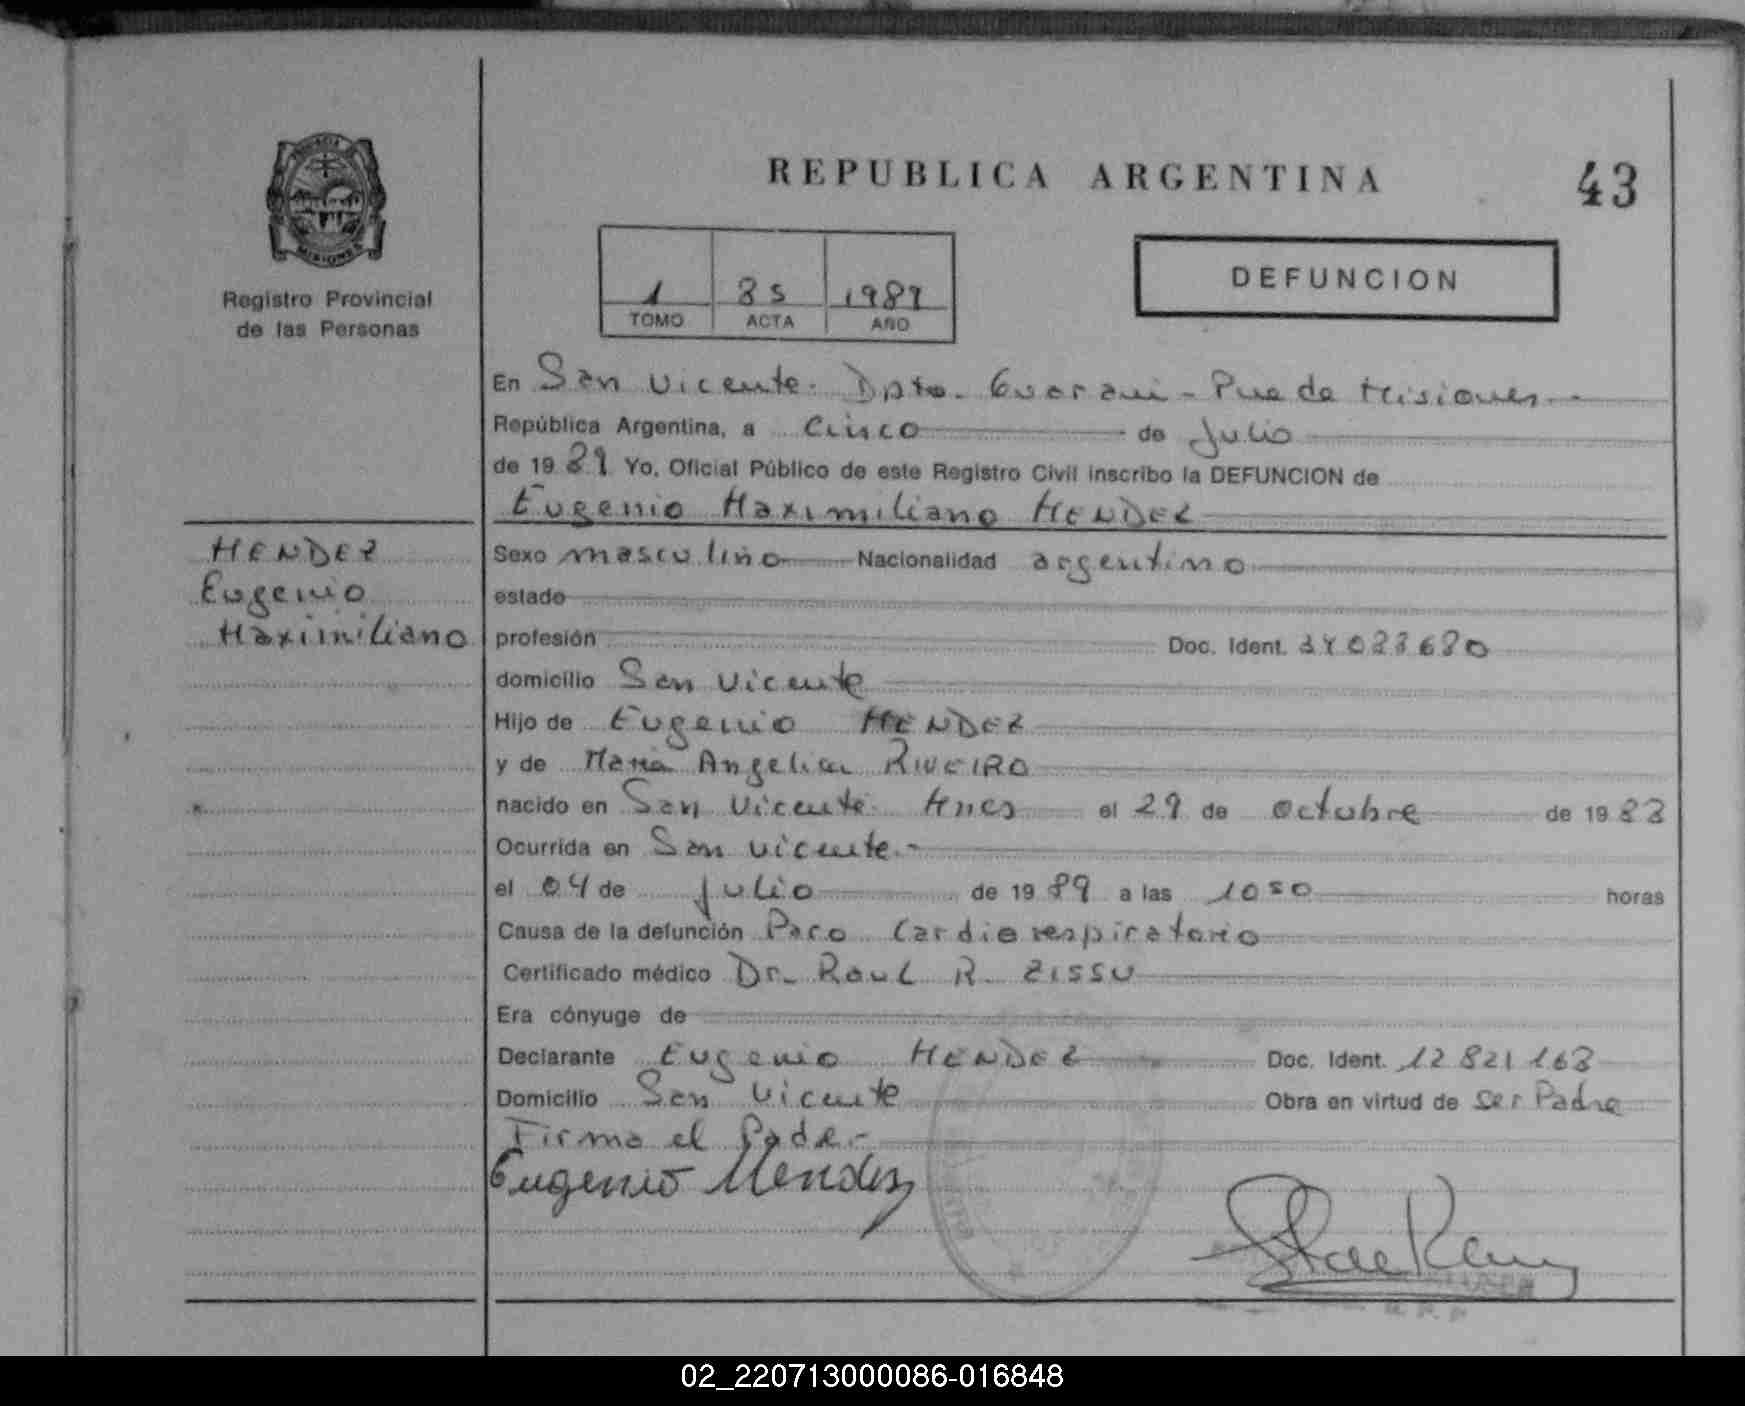 REPUBLICA ARGENTINA
43
PROVINCIA
MISIONES
Registro Provincial
de las Personas
1 85 1989
TOMO ACTA AÑO
DEFUNCION
En San Vicente. Dpto. Guarani - Pue de Misiones.-
República Argentina, a Cinco de Julio
de 19 89 Yo, Oficial Público de este Registro Civil inscribo la DEFUNCION de
Eugenio Maximiliano MENDEZ
MENDEZ
Eugenio
Maximiliano
Sexo masculino Nacionalidad argentino
estado
profesión Doc. Ident.
domicilio San Vicente
Hijo de Eugenio MENDEZ
y de Maria Angelica RIVEIRO
nacido en San Vicente Mnes el 29 de octubre de 19 88
Ocurrida en San Vicente.-
el 04 de Julio de 19 89 a las 1050 horas
Causa de la defunción Paro Cardiorespiratorio
Certificado médico Dr. Raul R. ZISSU
Era cónyuge de
Declarante Eugenio MENDEZ Doc. Ident. 12 821 163
Domicilio San Vicente Obra en virtud de ser Padre
Firma el Padre.-
Eugenio Mendez
02_220713000086-016848